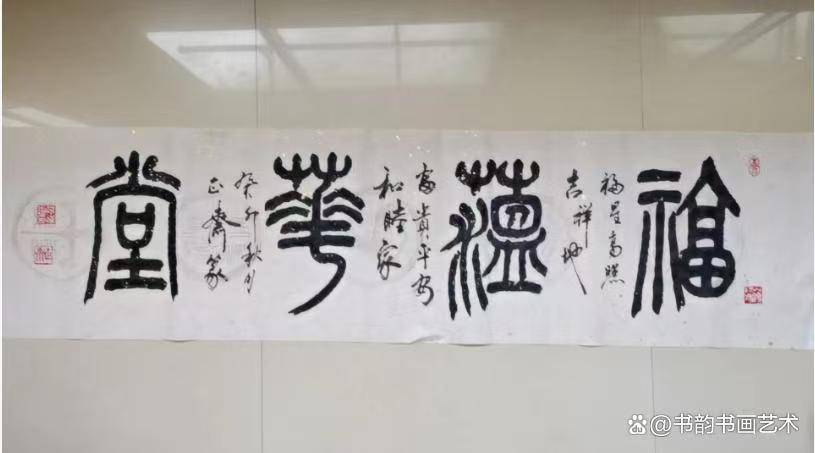 福
福星高照
吉祥地
薀
富貴平安
和睦家
華
癸卯秋月
正齋篆
堂
@书韵书画艺术